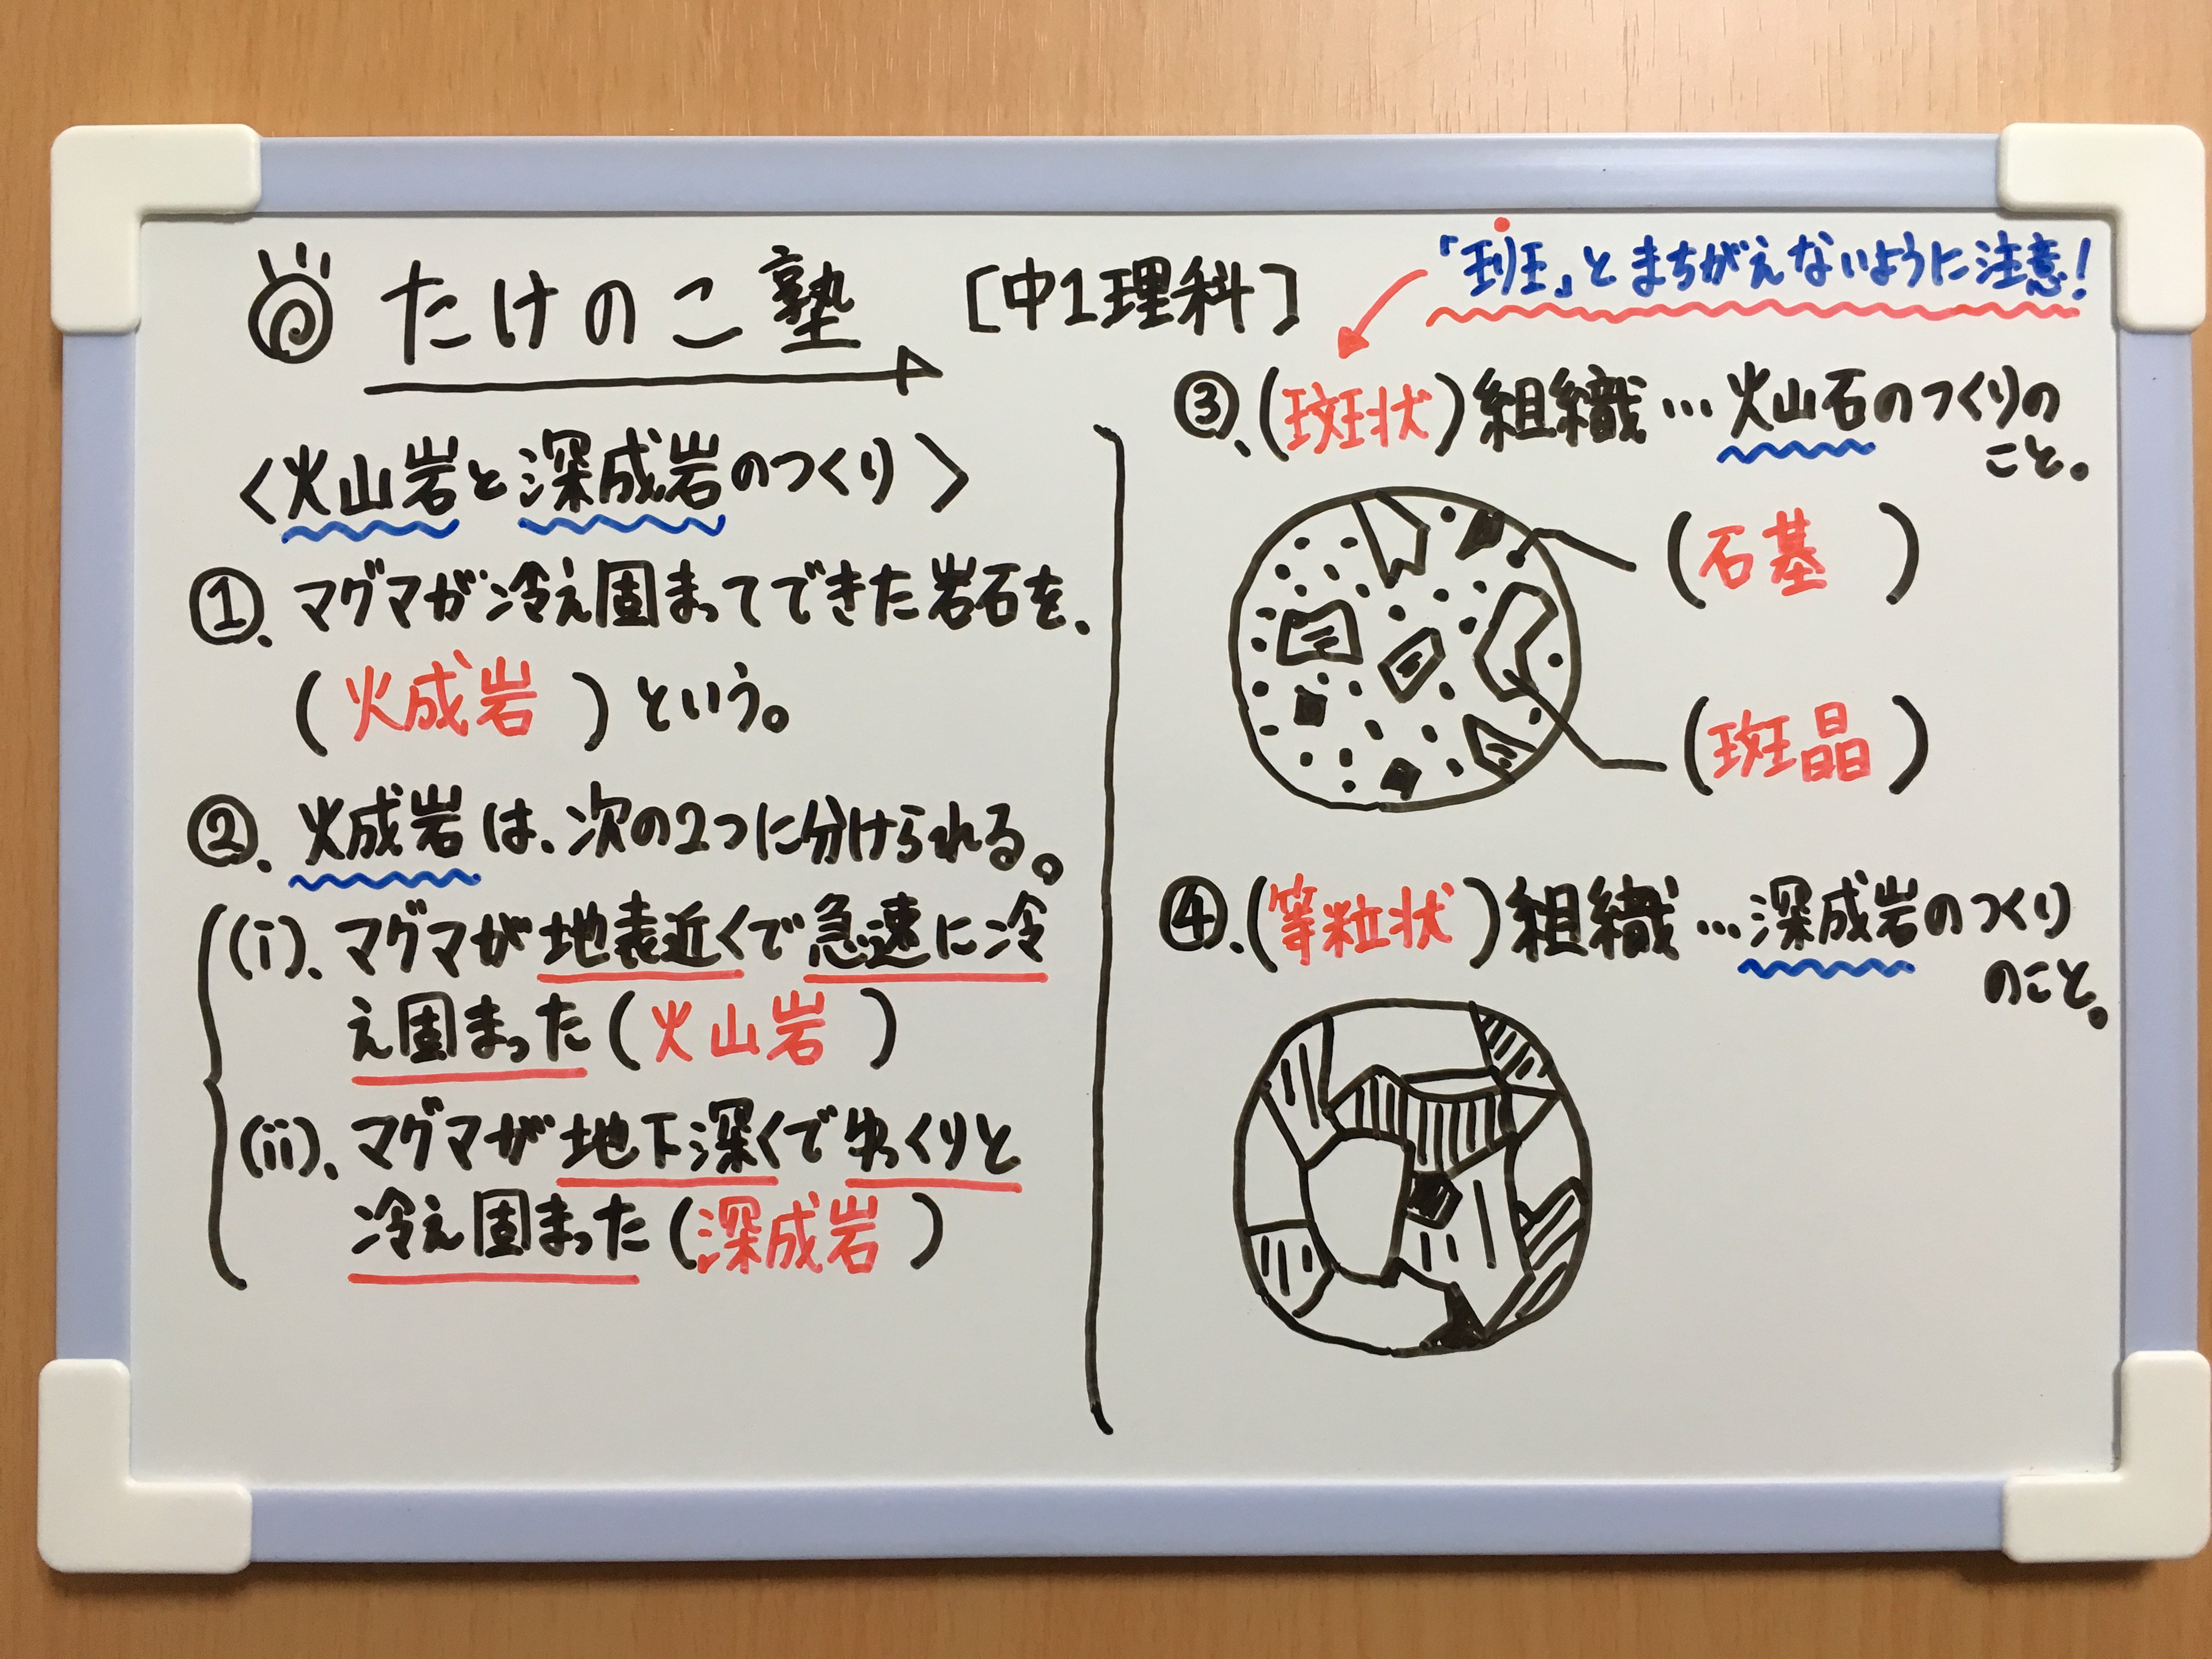 たけのこ塾 [中1理科]
<火山岩と深成岩のつくり>
①. マグマが冷え固まってできた岩石を、
(火成岩)という。
②. 火成岩は、次の2つに分けられる。
(i). マグマが地表近くで急速に冷
え固まった(火山岩)
(ii). マグマが地下深くでゆっくりと
冷え固まった(深成岩)
「班」とまちがえないように注意!
③. (斑状)組織…火山石のつくりの
こと。
(石基)
(斑晶)
④. (等粒状)組織…深成岩のつくり
のこと。